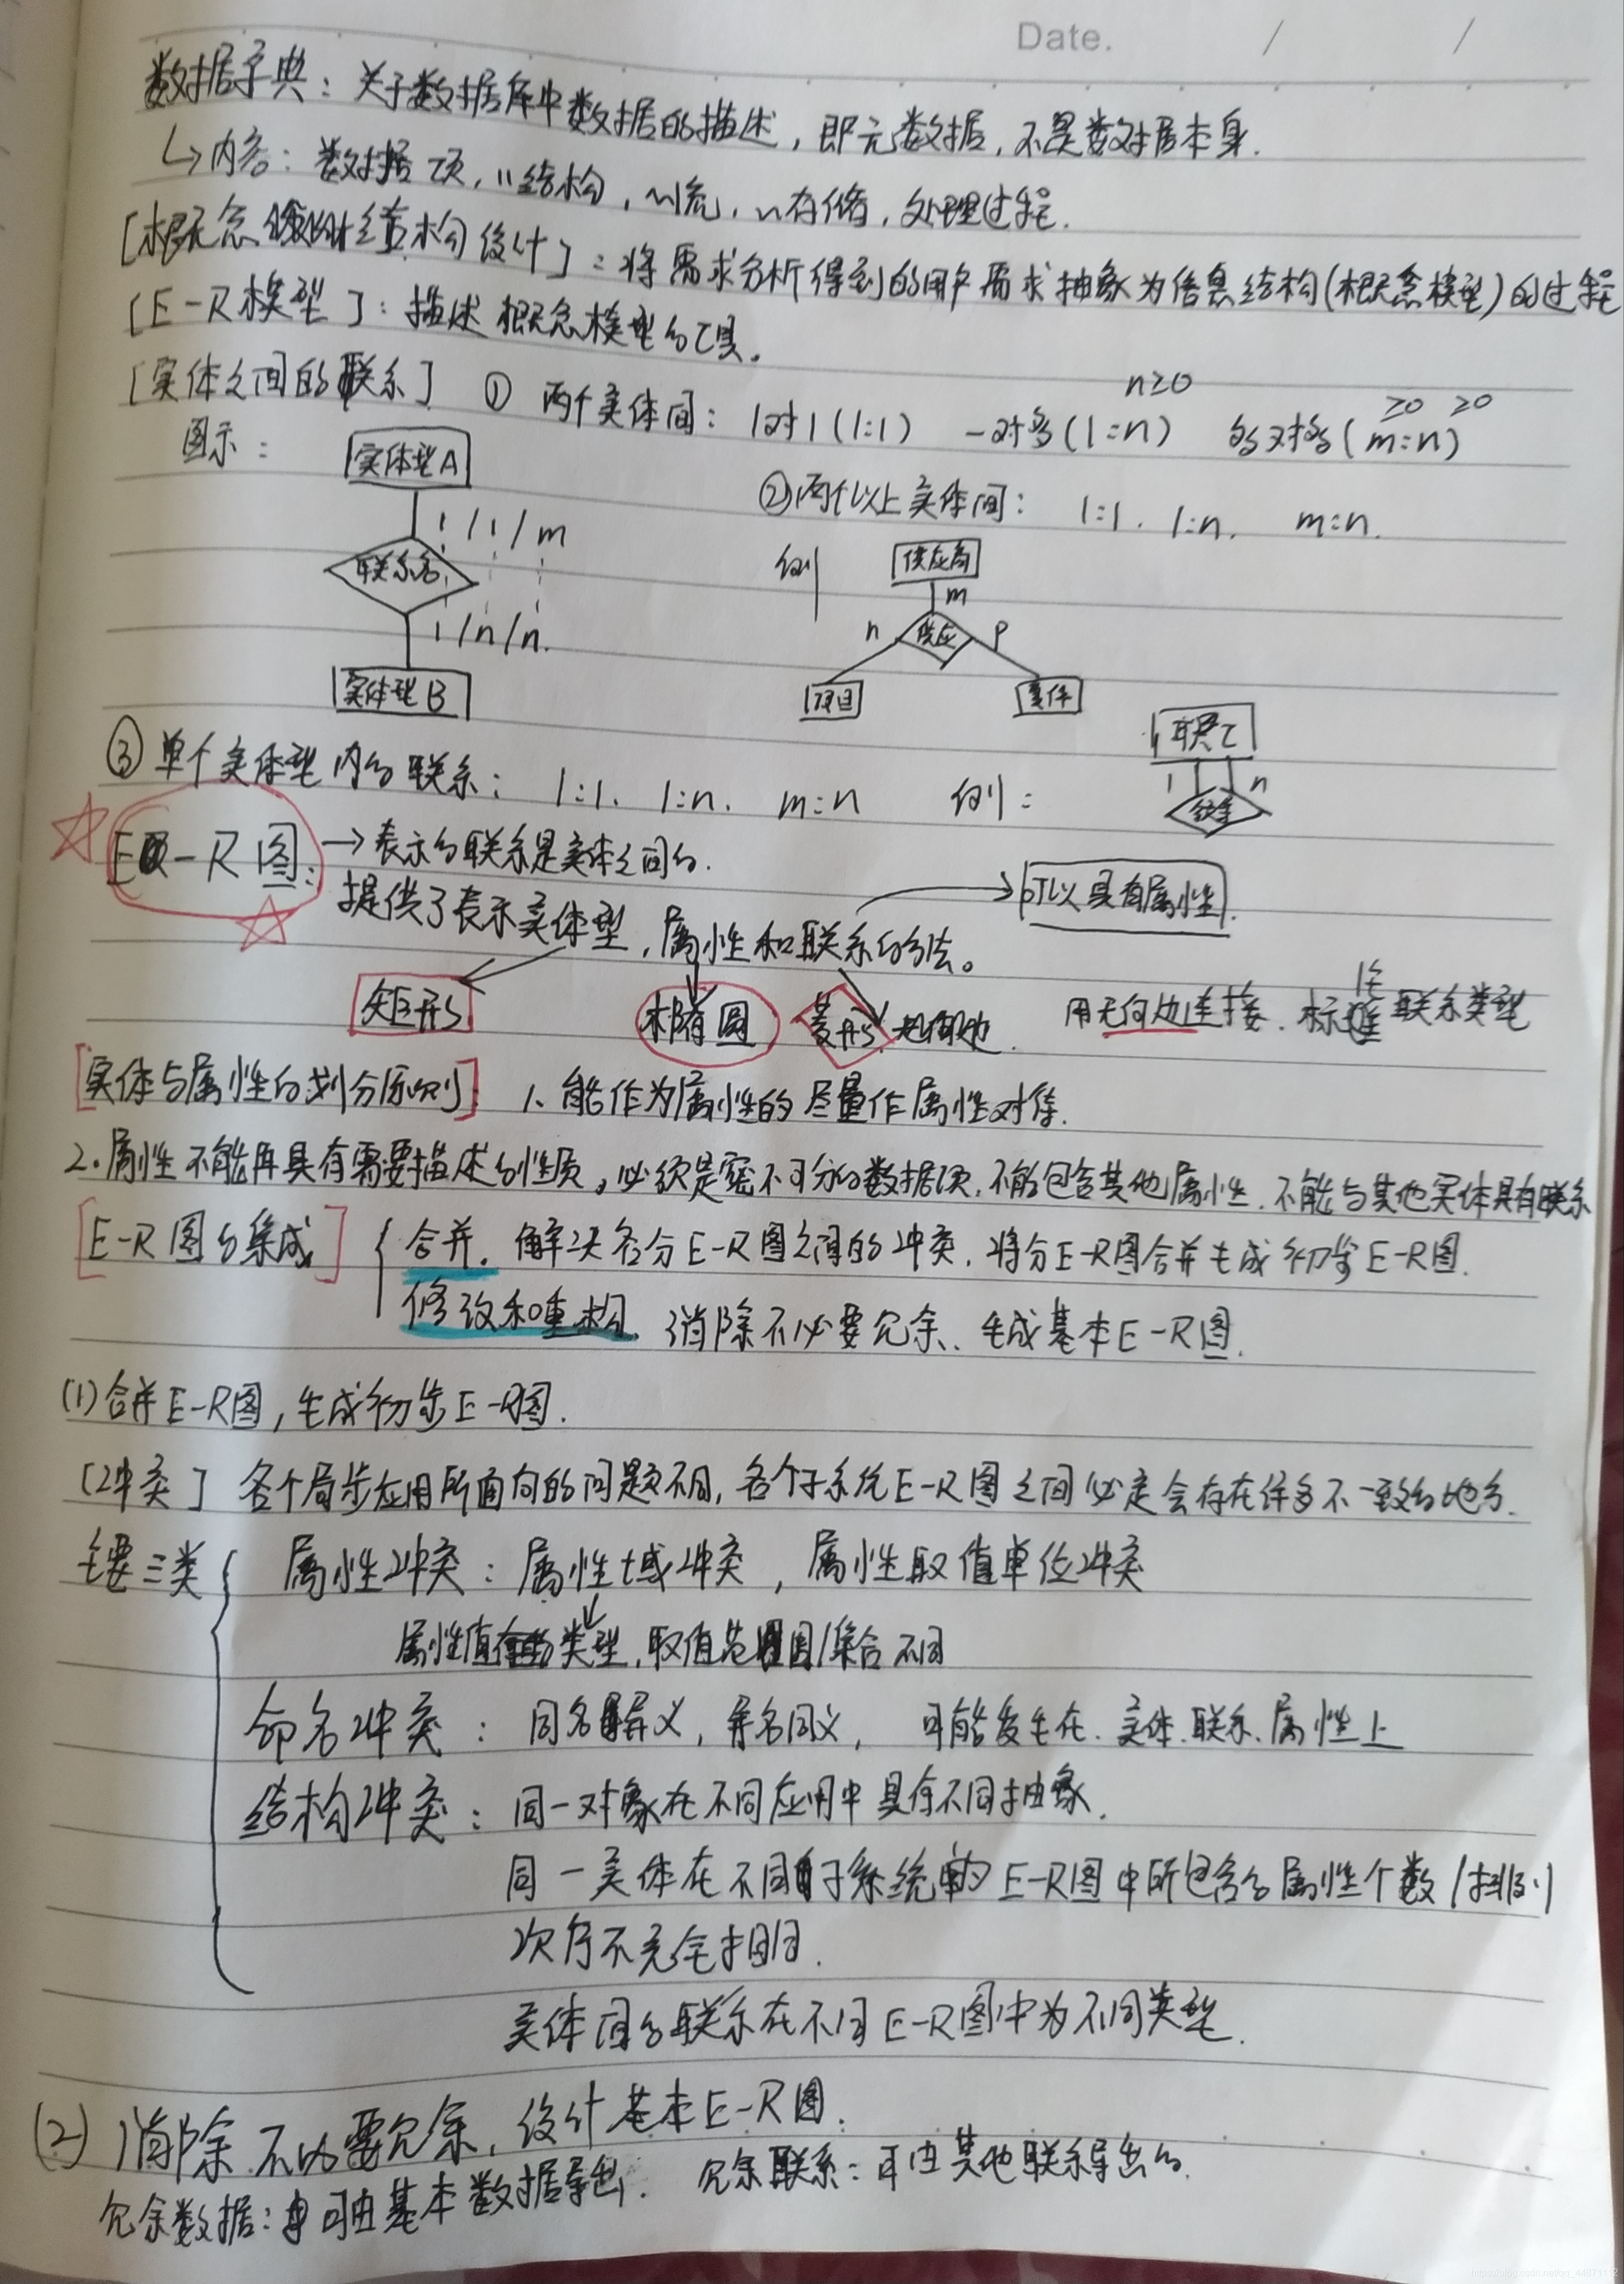 Date. / /
数据字典：关于数据库中数据的描述，即元数据，不是数据本身.
↳内容：数据项，〃结构，〃流，〃存储，处理过程.
[概念结构设计]：将需求分析得到的用户需求抽象为信息结构(概念模型)的过程
[E-R模型]：描述概念模型的工具。
[实体之间的联系] ① 两个实体间： 1对1(1:1) 一对多(1:n) 多对多(m:n)
n≥0 ≥0 ≥0
图示：
实体型A
1/1/m
联系名
1/n/n.
实体型B
②两个以上实体间： 1:1. 1:n. m:n.
例
供应商
m
n 供应 p
项目 零件
③单个实体型内的联系： 1:1. 1:n. m:n 例：
职工
1 n
E-R图： →表示的联系是实体之间的.
提供了表示实体型，属性和联系的方法。
可以具有属性.
矩形 椭圆 菱形 用无向边连接. 标注联系类型
[实体与属性的划分原则] 1. 能作为属性的尽量作属性对待.
2. 属性不能再具有需要描述的性质。必须是不可分的数据项. 不能包含其他属性. 不能与其他实体具有联系
[E-R图的集成] { 合并. 解决各分E-R图之间的冲突. 将分E-R图合并生成初步E-R图.
修改和重构. 消除不必要冗余、生成基本E-R图.
(1)合并E-R图，生成初步E-R图.
[冲突] 各个局步应用所面向的问题不同，各个子系统E-R图之间必定会存在许多不一致的地方.
主要三类 { 属性冲突：属性域冲突，属性取值单位冲突
属性值的类型，取值范围/集合不同
命名冲突：同名异义，异名同义，可能发生在. 实体. 联系. 属性上
结构冲突：同一对象在不同应用中具有不同抽象.
同一实体在不同子系统的E-R图中所包含的属性个数/排列
次序不完全相同.
实体间的联系在不同E-R图中为不同类型.
(2)消除不必要冗余，设计基本E-R图.
冗余数据：可由基本数据导出. 冗余联系：可由其他联系导出的.